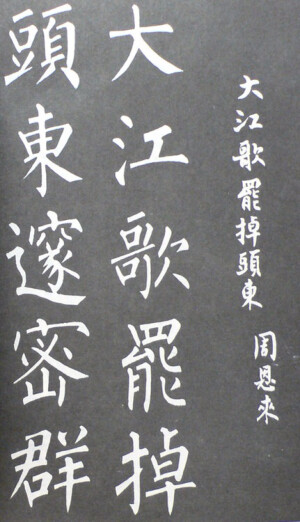 大江歌罷掉頭東
周恩來
大江歌罷掉
頭東邃密群